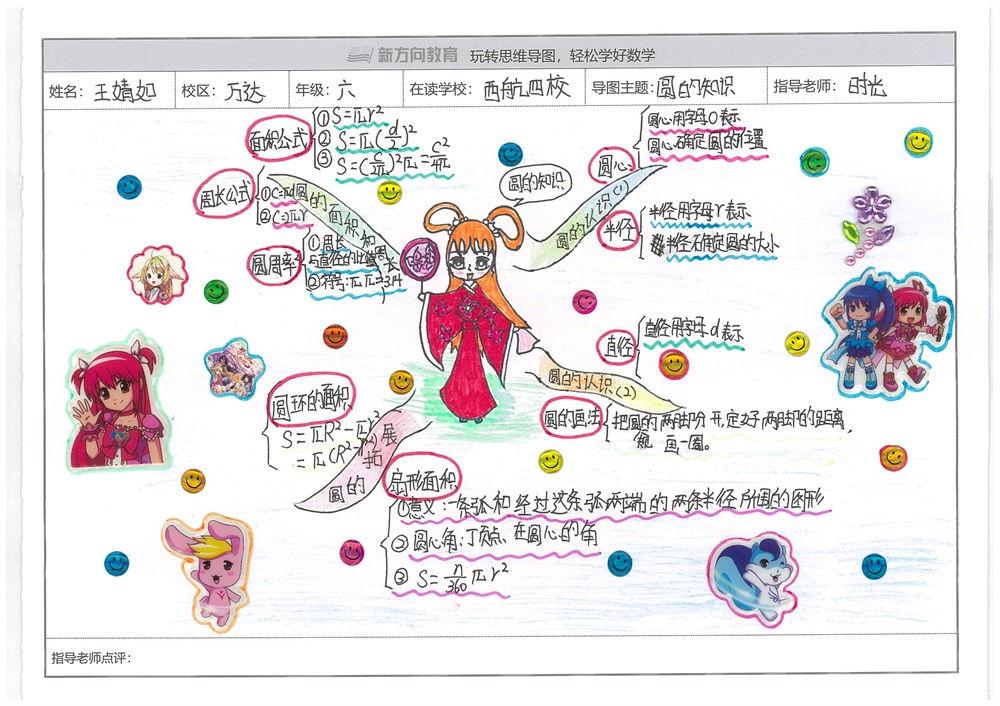 新方向教育 玩转思维导图，轻松学好数学
姓名：王婧如 校区：万达 年级：六 在读学校：西航四校 导图主题：圆的知识 指导老师：时光
圆的知识
圆的认识(1)
圆心
圆心用字母O表示
圆心确定圆的位置
半径
半径用字母r表示
半径确定圆的大小
圆的认识(2)
直径
直径用字母d表示
圆的画法
把圆的两脚分开,定好两脚的距离,
画一圈。
圆的面积和周长
面积公式
①S=πr²
②S=π(d/2)²
③S=(C/2π)²π=C²/4π
周长公式
①C=πd
②C=2πr
圆周率
①周长
与直径的比值
②符号:π π≈3.14
圆的拓展
圆环的面积
S=πR²-πr²
=π(R²-r²)
扇形面积
①意义:一条弧和经过这条弧两端的两条半径所围的图形
②圆心角:顶点在圆心的角
③S=n/360πr²
指导老师点评：